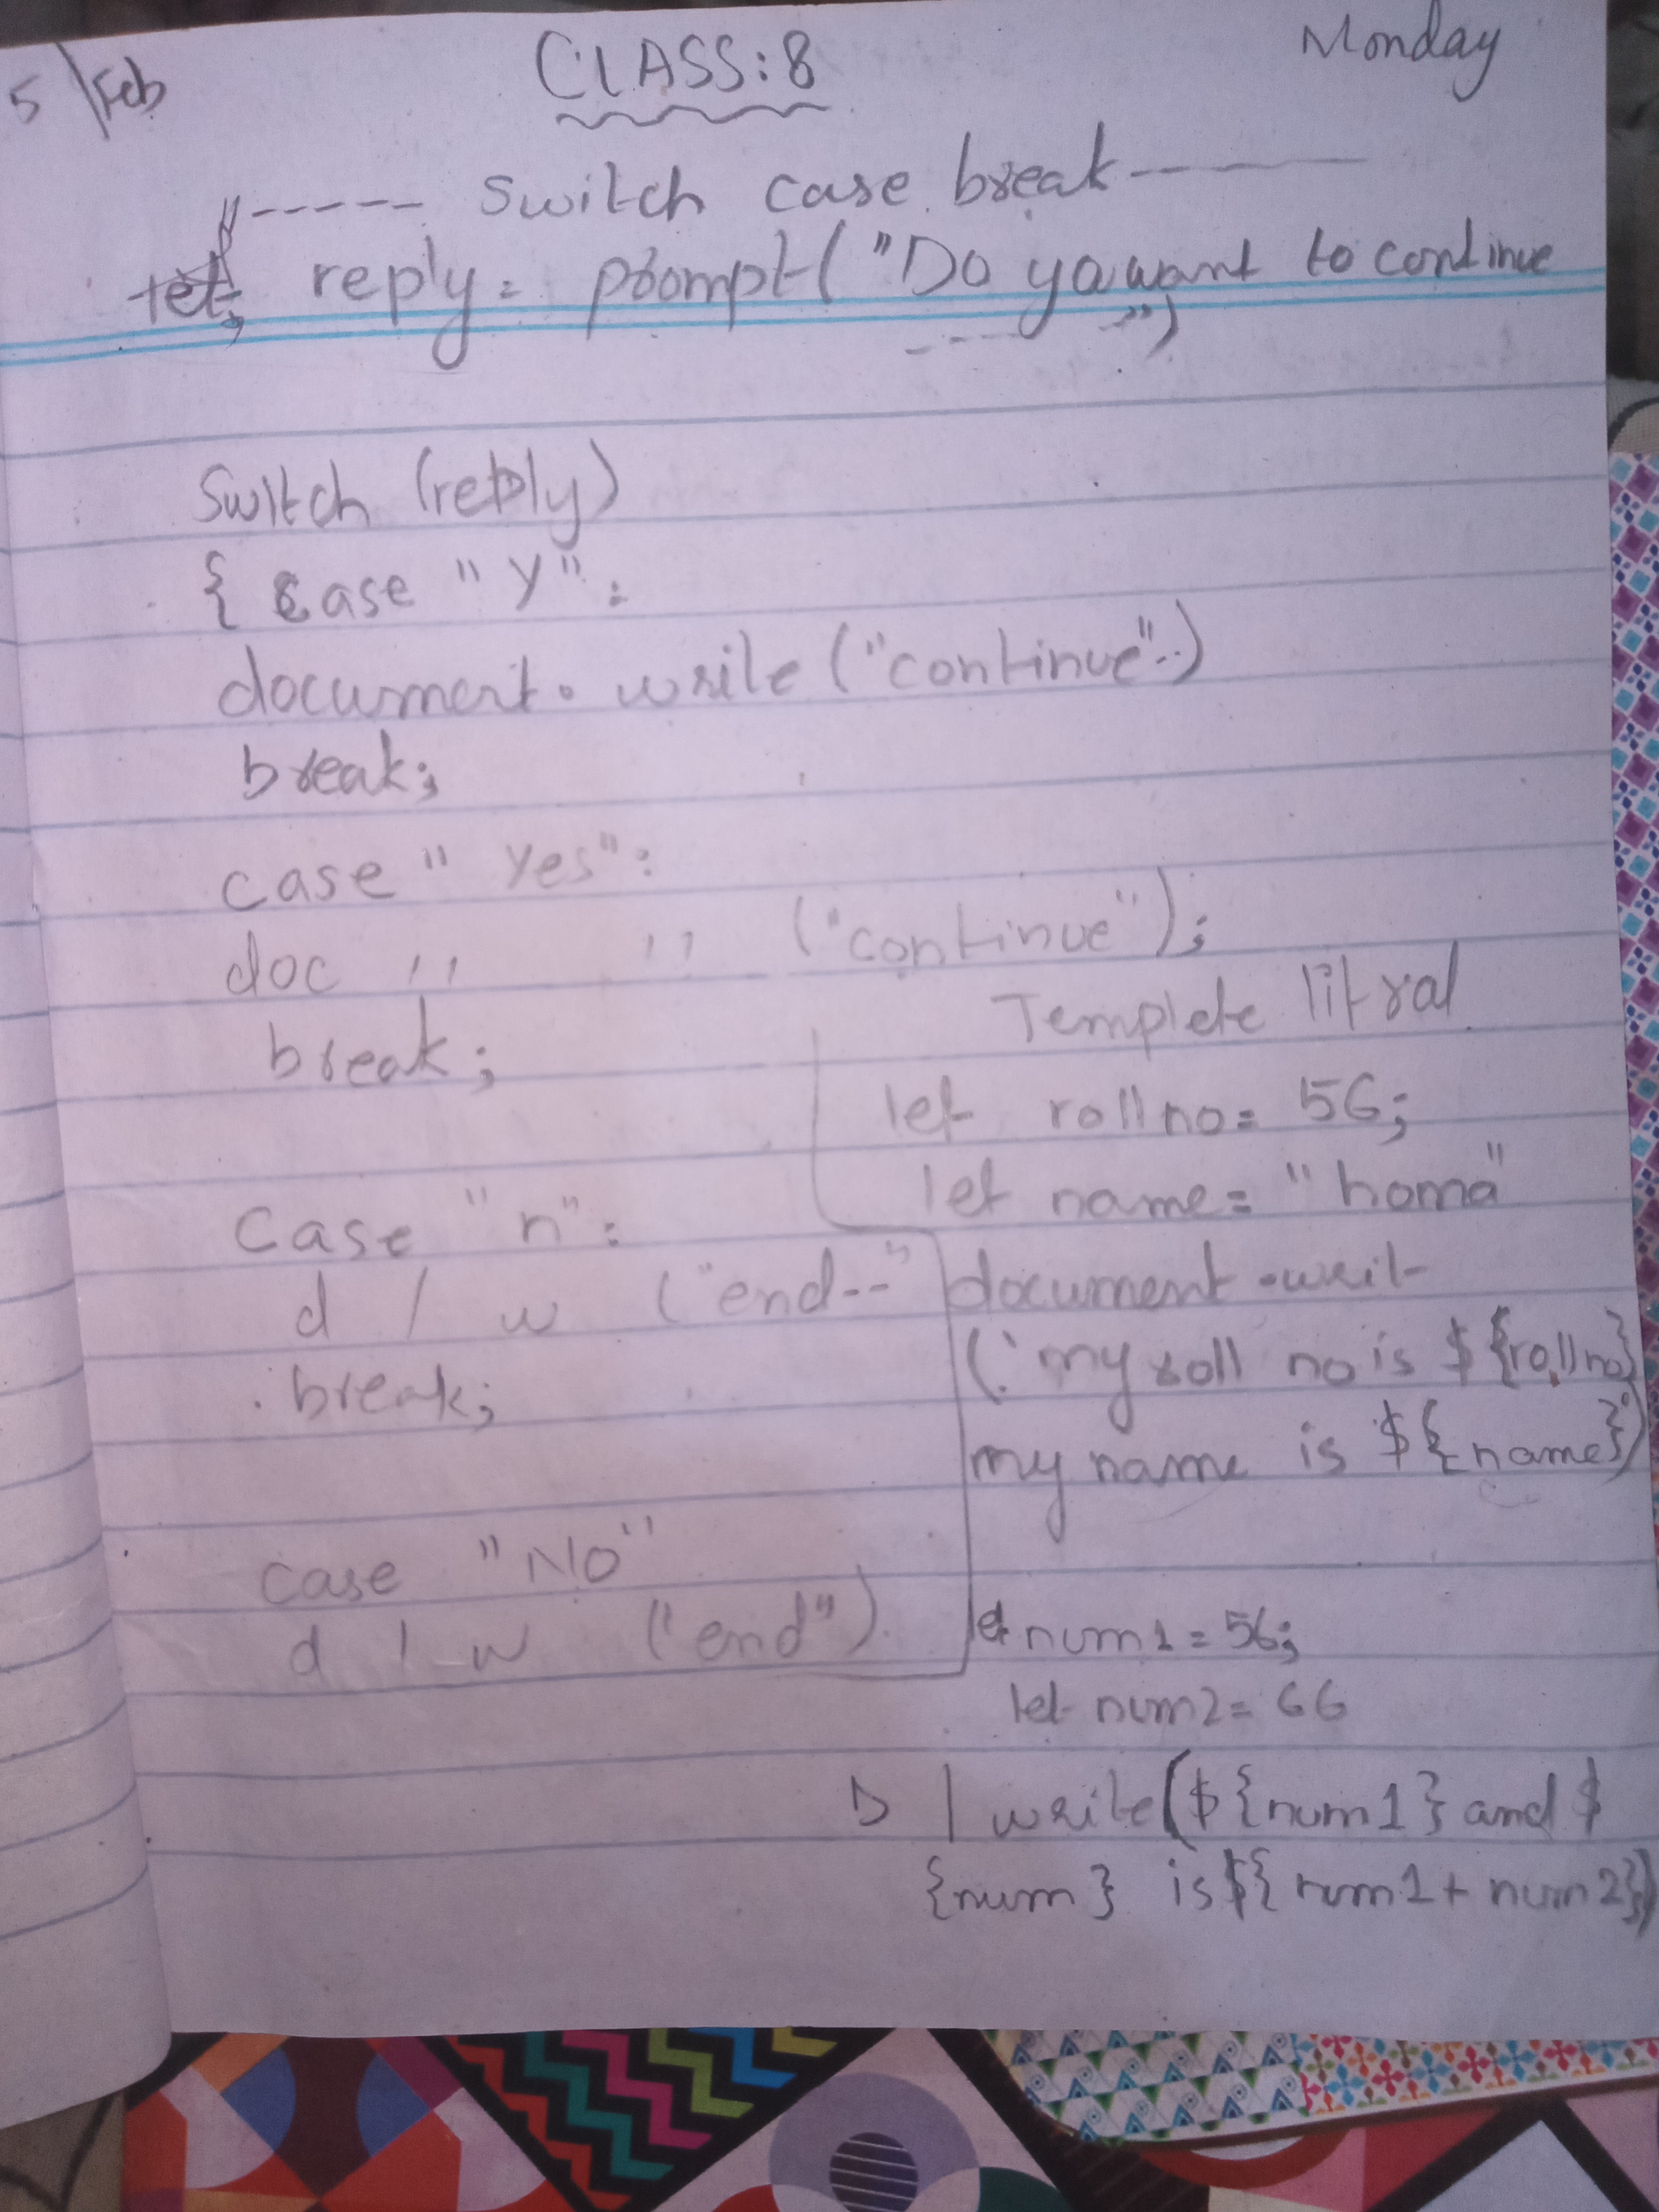 5 \Feb
CLASS:8
Monday
//----- Switch case break-----
let; reply= prompt("Do ya want to continue
----")
Switch (reply)
{ case "Y":
document.write("continue"..)
break;
case "Yes":
doc ,, ,, ("continue");
break;
Case "n":
d / w ("end--"
break;
case "No"
d / w ("end")
Templete litral
let rollno= 56;
let name= "homa"
document.writ-
(`my roll no is ${rollno}
my name is ${name}`)
let num1=56;
let num2= 66
D | write(${num1} and $
{num} is ${num1+ num2})